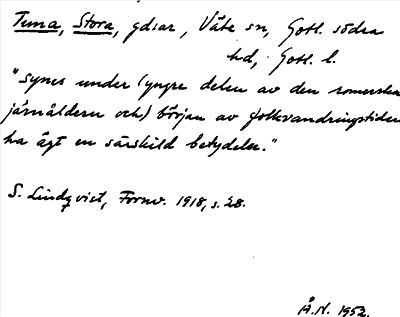 Tuna, Stora, gdsar, Väte sn, Gotl. södra
hd, Gotl. l.
"synes under (yngre delen av den romerska
järnåldern och) början av folkvandringstiden
ha ägt en särskild betydelse."
S. Lindqvist, Fornv. 1918, s. 28.
Å.N. 1952.